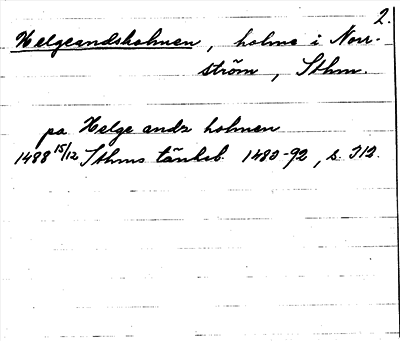 2.
Helgeandsholmen, holme i Norr-
ström, Sthm.
pa Helge andz holmen
1488 15/12 Sthms tänkeb. 1483-92, s. 312.